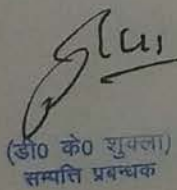 (डी० के० शुक्ला)
सम्पत्ति प्रबन्धक